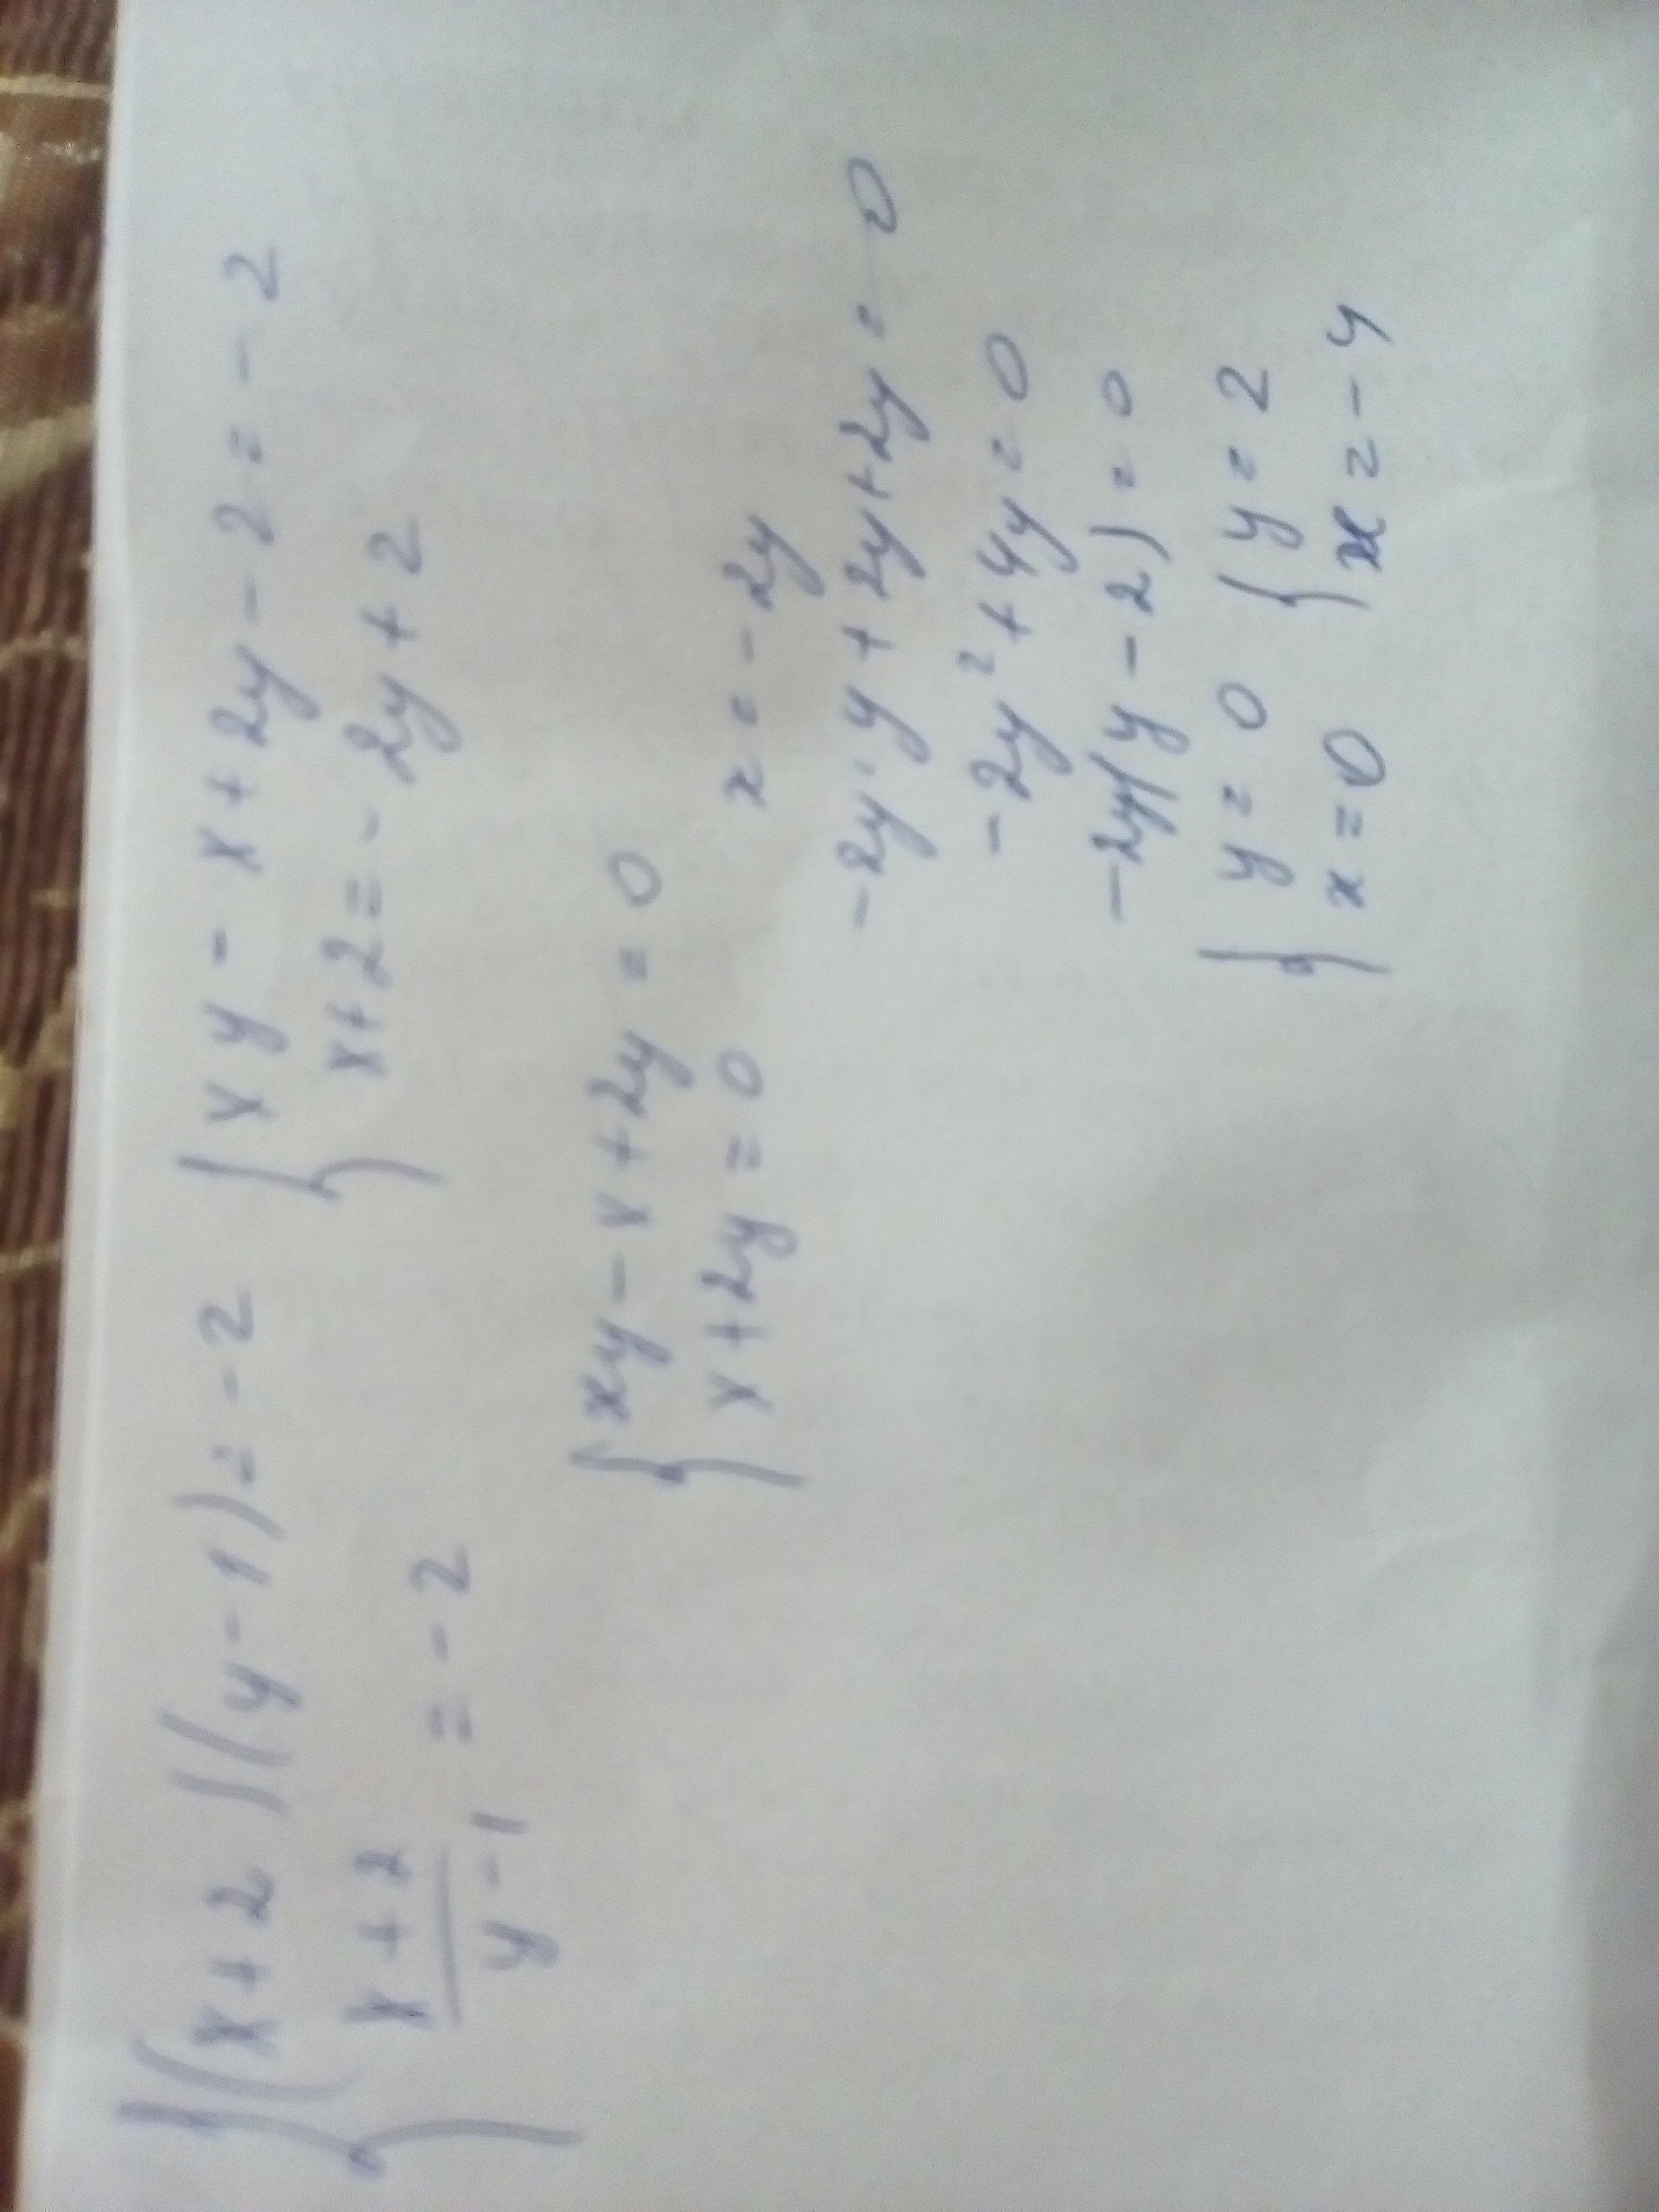 { (x+2)(y-1) = -2 { xy - x + 2y - 2 = -2
x+2 / y-1 = -2 x+2 = -2y+2
{ xy - x + 2y = 0
x + 2y = 0 x = -2y
-2y·y + 2y + 2y = 0
-2y² + 4y = 0
-2y(y-2) = 0
{ y = 0 { y = 2
x = 0 x = -4